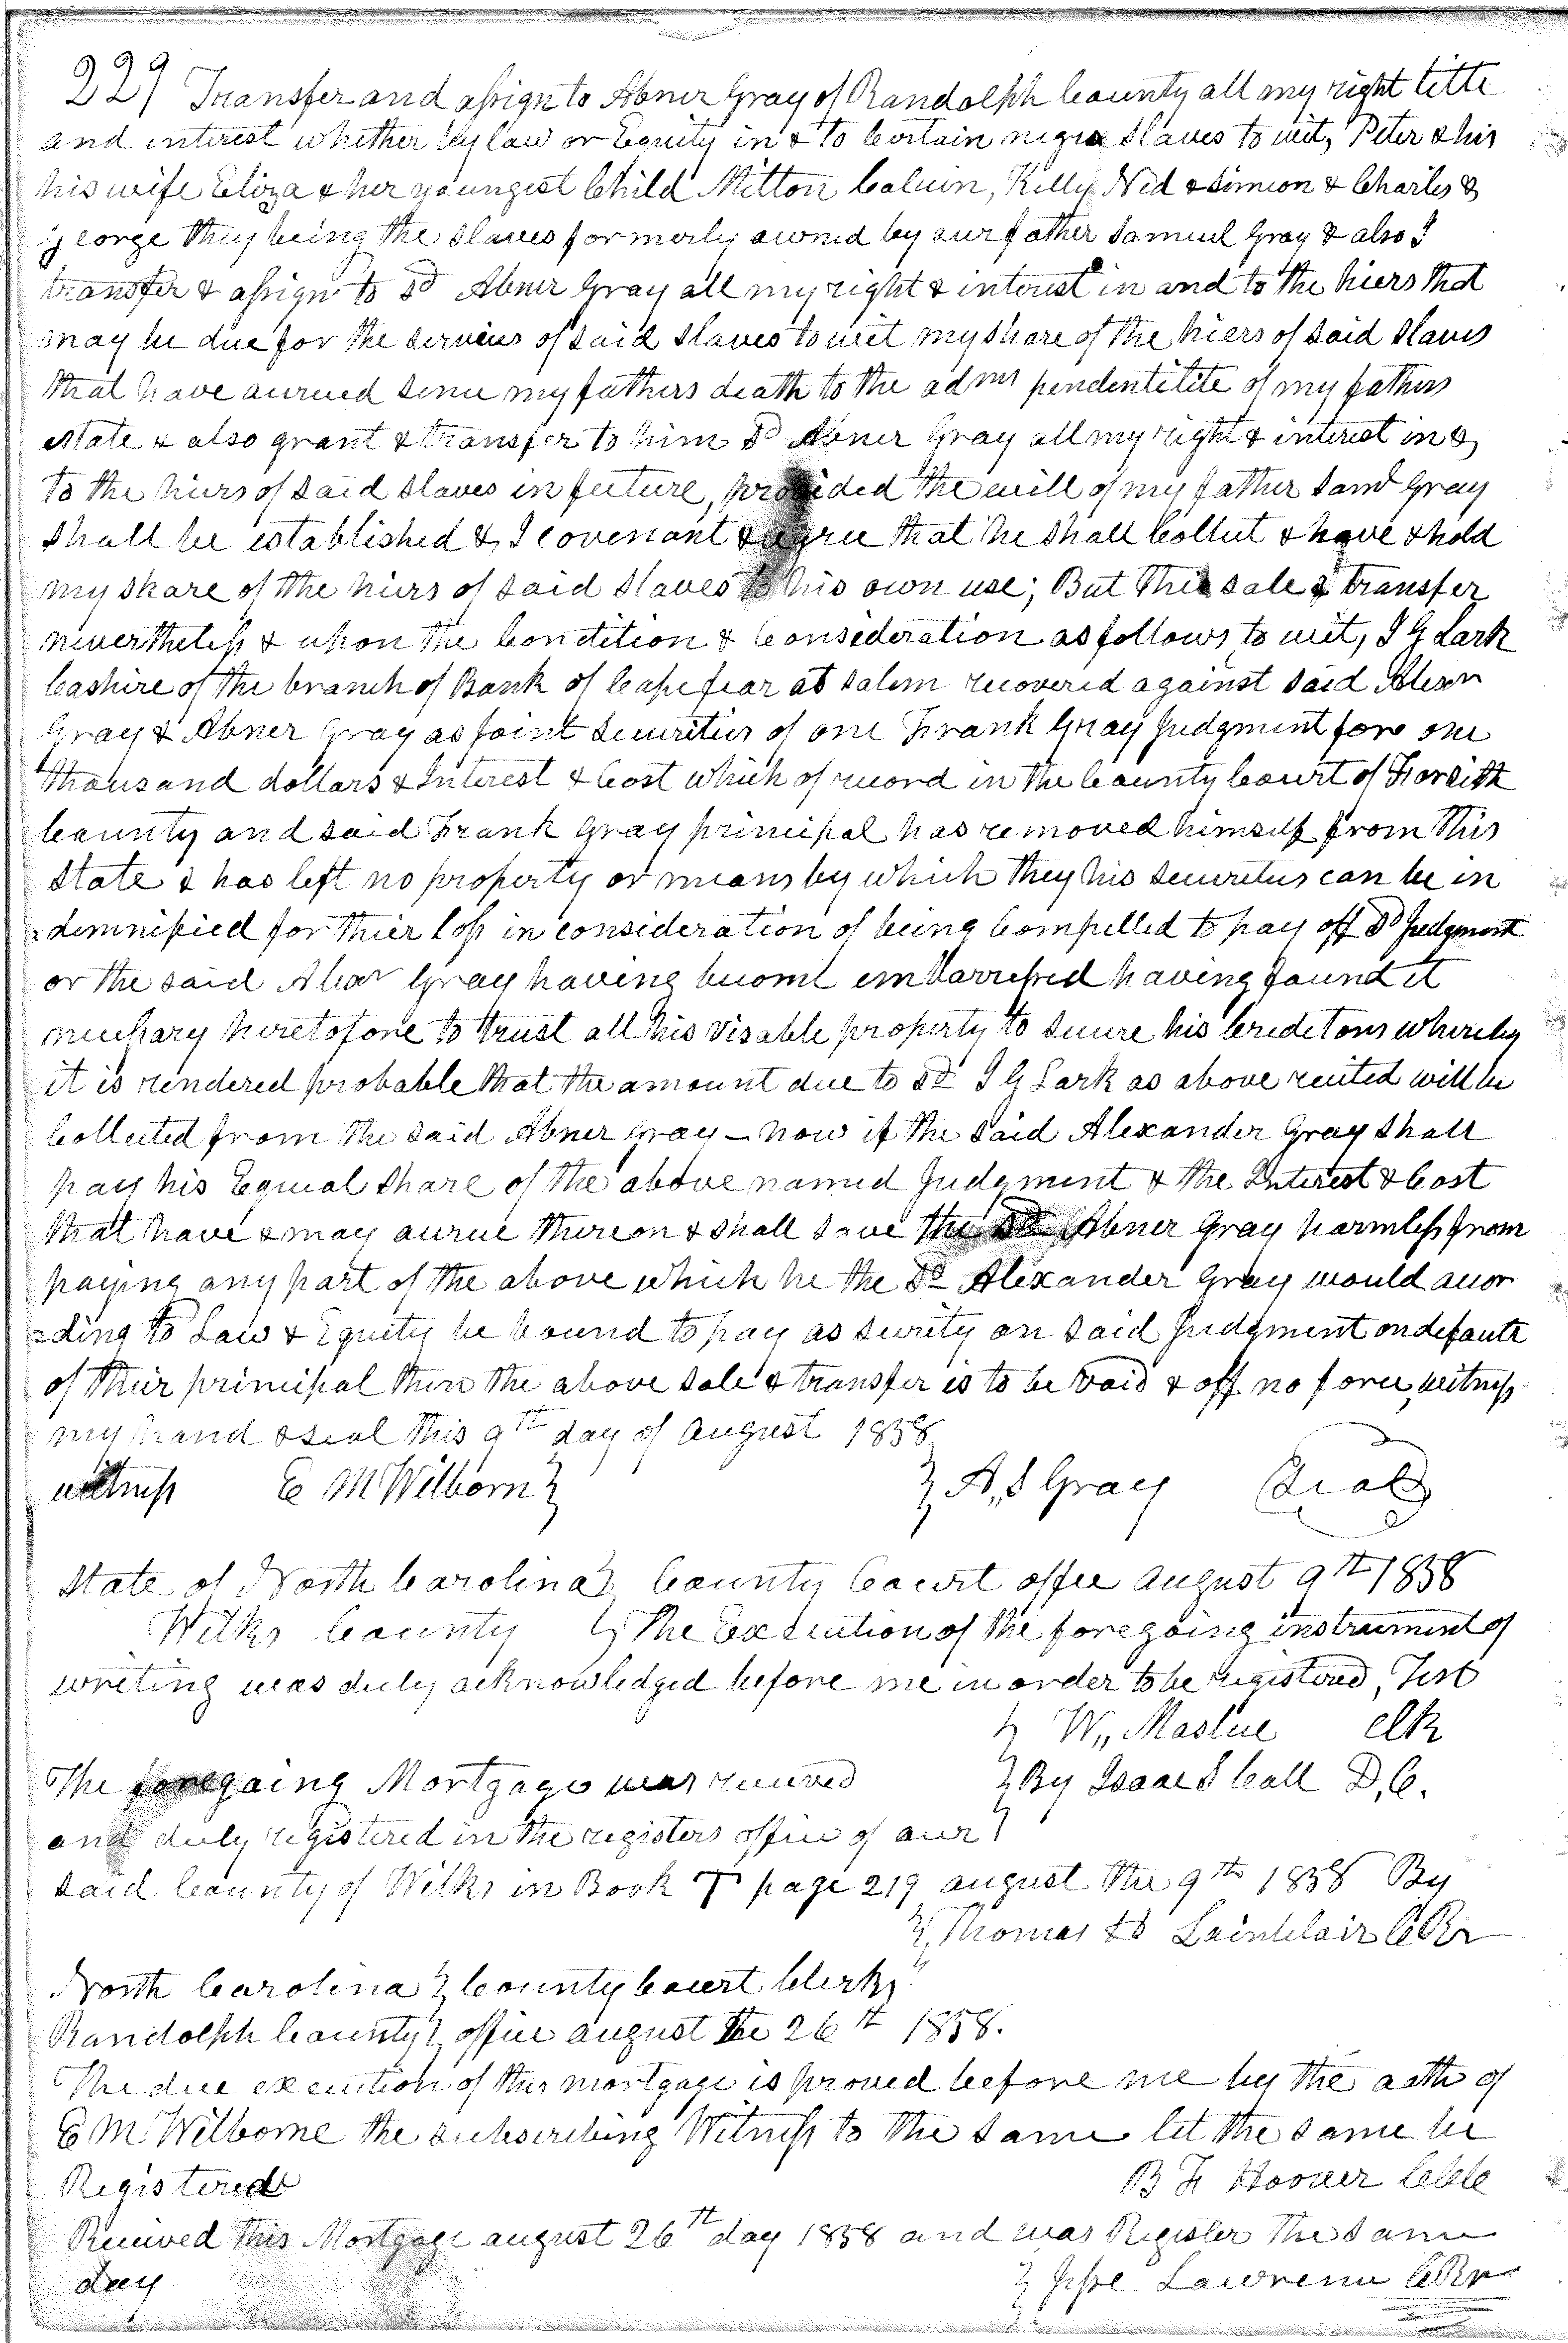 229 Transfer and assign to Abner Gray of Randolph County all my right title
and interest whether by law or Equity in & to Certain negro slaves to wit, Peter & his
his wife Eliza & her youngest Child Milton Calvin, Kelly Ned & Simeon & Charles &
George they being the slaves formerly owned by our father Samuel Gray & also I
transfer & assign to sd Abner Gray all my right & interest in and to the hiers that
may be due for the services of said slaves to wit my share of the hiers of said slaves
that have accrued since my fathers death to the admr pendentilite of my fathers
estate & also grant & transfer to him sd Abner Gray all my right & interest in &
to the hiers of said slaves in feuture, provided the will of my father Saml Gray
shall be established & I covenant & agree that he shall Collect & have & hold
my share of the hiers of said slaves to his own use; But this sale & transfer
nevertheless & upon the Condition & Consideration as follows to wit, I G Lark
Cashire of the branch of Bank of Capefear at Salem recovered against said Alexr
Gray & Abner Gray as joint securities of one Frank Gray Judgment for one
thousand dollars & Interest & Cost which of record in the County Court of Forsith
County and said Frank Gray principal has removed himself from this
State & has left no property or means by which they his securetus can be in
=demnified for thier loss in consideration of being Compelled to pay off sd Judgment
or the said Alexr Gray having become embarrssed having found it
necessary heretofore to trust all his visable property to secure his Creditors whereby
it is rendered probable that the amount due to sd I G Lark as above recited will be
Collected from the said Abner Gray – now if the said Alexander Gray shall
pay his Equal share of the above named Judgment & the Interest & Cost
that have & may accrue thereon & shall save the sd Abner Gray harmless from
paying any part of the above which he the sd Alexander Gray would accor
=ding to Law & Equity be bound to pay as surity on said Judgment on default
of their principal then the above sale & transfer is to be void & off no force, witness
my hand & seal this 9th day of August 1858
witness E M Wilborn } } A,, S Gray (Seal)
State of North Carolina } County Court offce August 9th 1858
Wilks County } The Execution of the foregoing instrument of
writing was duly acknowledged before me in order to be registered, Test
} W,, Mastue Clk
The foregoing Mortgage was received } By Isaac S Call D,C.
and duly registered in the registers office of our }
said County of Wilks in Book T page 219 august the 9th 1858 By
} Thomas Laintclair C Rr
North Carolina } County Court Clerks
Randolph County } office august the 26th 1858.
The due execution of this mortgage is proved before me by the oath of
E M Wilborne the subscribing Witness to the same let the same be
Registered
B F Hoover Clk
Received this Mortgage august 26th day 1858 and was Register the same
day } Jesse Lawrence C Rr